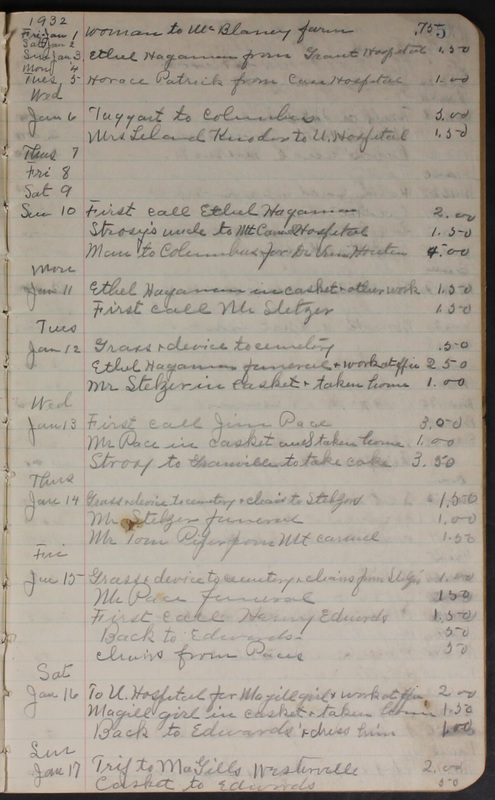 1932
Fri Jan 1 woman to Mc Blaney farm .75
Sat Jan 2
Sun Jan 3 Ethel Hagaman from Grant Hospital 1.50
Mon 4
Tues 5 Horace Patrick from Hospital 1.00
Wed
Jan 6 Taggart to Columbus 3.00
Mrs Leland to U. Hospital 1.50
Thus 7
Fri 8
Sat 9
Sun 10 First call Ethel Hagaman 2.00
uncle to Mt Carmel Hospital 1.50
Man to Columbus for Dr Van Houten 4.00
Mon
Jan 11 Ethel Hagaman in casket + other work 1.50
First call Mr Stelzer 1.50
Tues
Jan 12 Grass + device to cemetery .50
Ethel Hagaman funeral + work at offic 2 50
Mr Stelzer in casket + taken home 1.00
Wed
Jan 13 First call Jim Pace 3.00
Mr Pace in casket and taken home 1.00
to Granville to take cake 3.50
Thus
Jan 14 Grass + device to cemetery + chairs to Stelzers 1.50
Mr Stelzer funeral 1.00
Mr Tom Piper from Mt carmel 1.50
Fri
Jan 15 Grass + device to cemetery + chairs from 1.00
Mr Pace funeral 1 50
First call Henry Edwards 1.50
Back to Edwards 50
chairs from Paces 50
Sat
Jan 16 To U. Hospital for Magill girl + work at offic 2 00
Magill girl in casket + taken home 1.50
Back to Edwards + dress him 1.00
Sun
Jan 17 Trip to MaGills Westerville 2.00
Casket to Edwards 50